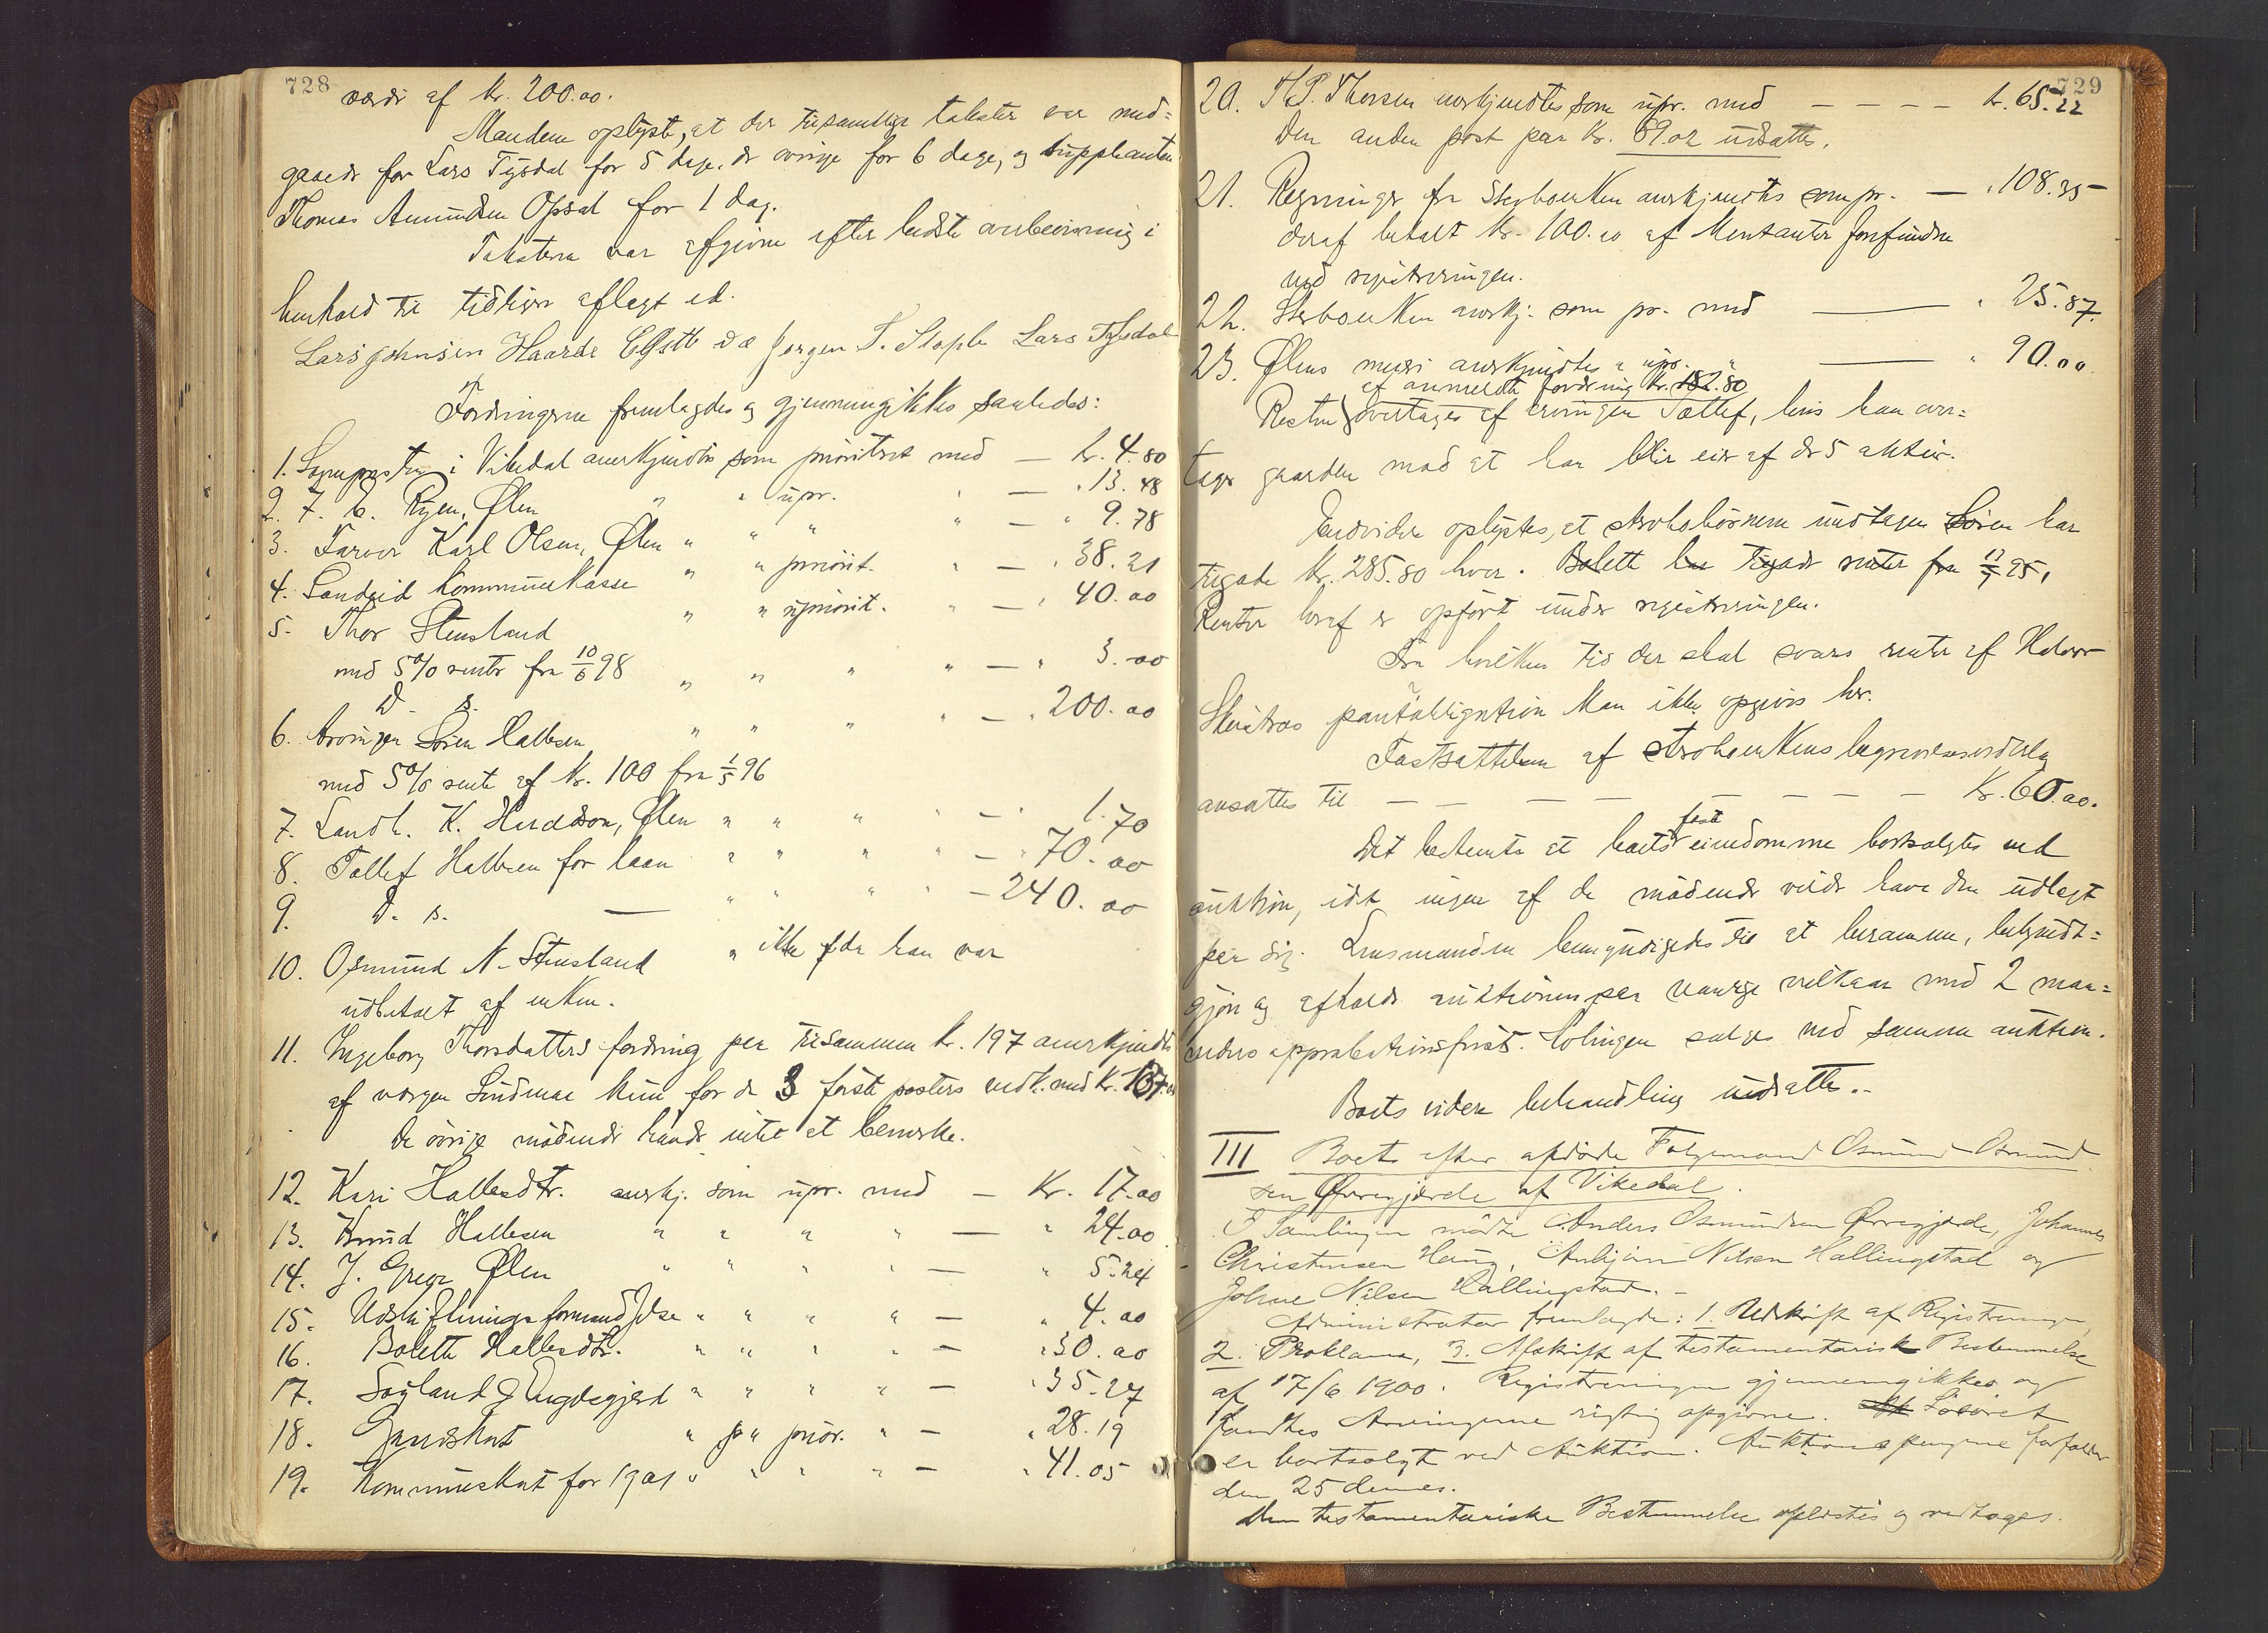 728
værdi af Kr. 200.00.
Mændene oplyste, at der til samtlige takster var med=
gaaede for Lars Tysdal for 5 dage, de øvrige for 6 dage, og suppleanten
Thomas Amundsen Opsal for 1 dag.
Taksterne var afgivne efter bedste overbevisning i
henhold til tidligere aflagt ed.
Lars Johnsen Haarde Jørgen T. Stople Lars Tysdal
Fordringerne fremlagdes og gjennemgikkes saaledes:
1. i Vikedal anerkjendtes som prioriteret med — Kr. 4.80
2. F. E. Ryen, Ølen " " upr. " — " 13.48
3. Farver Karl Olsen, Ølen " " " " — " 9.78
4. Sandeid Kommunekasse " " priorit. " — " 38.21
5. Thor Stensland " " upriorit. " — " 40.00
med 5% rente fra 10/6 98
D. s. " " " " — " 3.00
6. Arvingen Søren Hallesen " " " " — " 200.00
med 5% rente af Kr. 100 fra 1/5 96
7. Landh. K. Øen " " " " — " 1.70
8. Tollef Hallesen for laan " " " " — " 70.00
9. D. s. — " " " " — 240.00
10. Osmund N. Stensland " ikke da han var
udbetalt af enken.
11. Ingeborg Thorsdatters fordring paa tilsammen Kr. 197 anerkjendtes
af værgen Sundnæs kun for de 3 første posters vedk. med Kr. 107.00
De øvrige mødende havde intet at bemerke.
12. Kari Hallesdtr. anerkj. som upr. med — Kr. 17.00
13. Knud Hallesen " " " " — " 24.00
14. J. Grege Ølen " " " " — " 5.24
15. Udskiftningsformand Jelse " " " " — " 4.00
16. Bolette Hallesdtr. " " " " — " 30.00
17. Søyland & Engdegjerd " " " " — " 35.27
18. " " prior. " — " 28.19
19. Kommuneskat for 1901 " " " " — " 41.05
729
20. Th. P. Thorsen anerkjendtes som upr. med — — — — Kr. 65.22
Den anden post paa Kr. 89.02 udsattes.
21. Regninger fra Sterboenken anerkjendtes som pr. — " 108.35
deraf betalt Kr. 100.00 af kontanter forefundne
ved registreringen.
22. Sterboenken anerkj. som pr. med — " 25.87
23. Ølens meieri anerkjendtes " upr. " — " 90.00
af anmeldte fordring Kr. 182.80
Resten overtages af arvingen Tollef, hvis han over=
tager gaarden mod at han blir eier af de 5 aktier.
Endvidere oplystes, at sterbobørnene undtagen Søren har
tilgode Kr. 285.80 hver. Bolette har tilgode renter fra 12/7 95,
Renter heraf er opført under registreringen.
Fra hvilken tid der skal svares renter af Halvor
pantobligation kan ikke opgives her.
Fastsættelsen af sterboenkens begravelsesudlæg
ansattes til — — — — — — — — Kr. 60.00.
Det bestemtes at boets fast eiendomme bortsolgtes ved
auktion, idet ingen af de mødende vilde have den udlagt
paa sig. Lensmanden bemyndigedes til at beramme, bekjendt=
gjøre og afholde auktionen paa vanlige vilkaar med 2 maa=
neders approbationsfrist. Løsingen sælges ved samme auktion.
Boets videre behandling udsattes.
III Boet efter afdøde Følgemand Osmund Osmund
sen Ørregjærde af Vikedal.
I Samlingen mødte Anders Osmundsen Ørregjærde, Johannes
Christensen Haug, Anbjørn Nilsen Hallingstad og
Johne Nilsen Hallingstad. —
Administrator fremlagde: 1. Udskrift af Registreringen,
2. Proklama, 3. Afskrift af testamentarisk Bestemmelse
af 17/6 1900. Registreringen gjennemgikkes og
fandtes Arvingerne rigtig opgivne. Løsøret
er bortsolgt ved Auktion. Auktionspengene forfalder
den 25 dennes.
Den testamentariske Bestemmelse oplæstes og vedtoges.